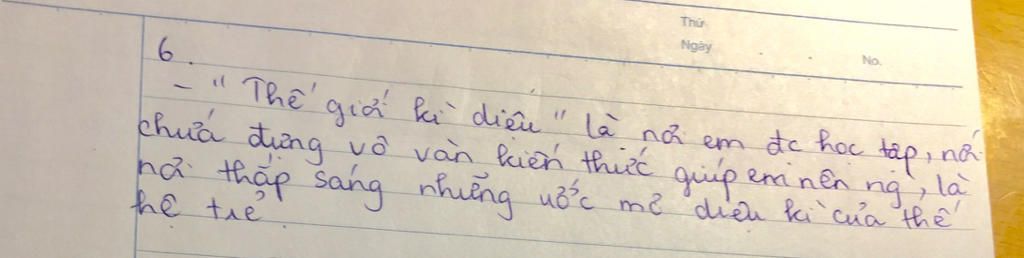 Thứ
Ngày
No.
6.
- "Thế giới kì diệu" là nơi em đc học tập, nơi
chứa đựng vô vàn kiến thức giúp em nên ng, là
nơi thắp sáng những ước mơ diệu kì của thế
hệ trẻ